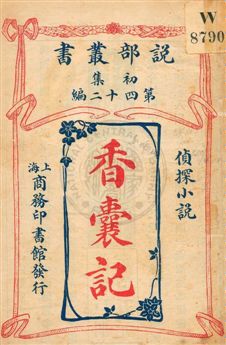 W
8790
說部叢書
初集
第四十二編
偵探小說
香囊記
上海商務印書館發行